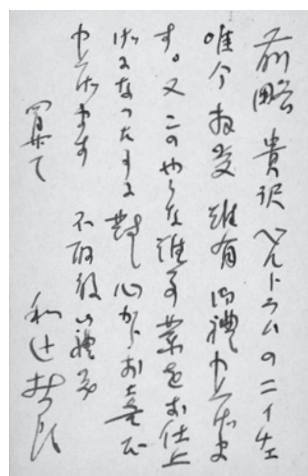 前略 貴訳ベルトラムのニイチェ
唯今拝受 難有御禮申上げま
す。又このやうな難事業を御仕上
げになつた事に對し心からお喜び
申上げます 不取敢御禮まで
匆々
和辻哲郎